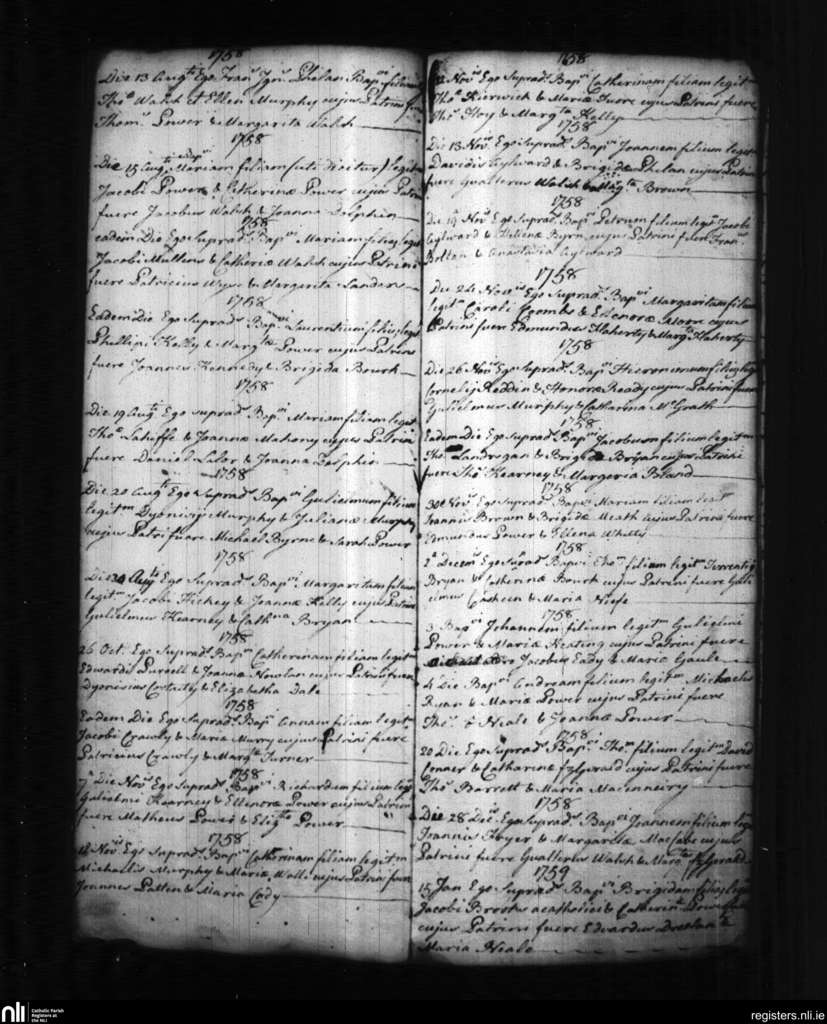 1758
Die 13 Augti Ego Frans Ignu Phelan Bapvi filium
Thos Walsh et Ellen Murphy cujus Patrini fu
Thoms Power & Margarita Walsh
1758
Die 15 Augti Bapvi Mariam filiam (uti dicitur) legit
Jacobi Power & Catherinæ Power cujus Patrin
fuere Jacobus Walsh & Joanna Dolphin
1758
eadem Die Ego Suprads Bapvi Mariam filiam legit
Jacobi Mullins & Catheriæ Walsh cujus Patrini
fuere Patricius Wyse & Margerita Sanders
1758
Eadem Die Ego Suprads Bapvi Laurentium filiu legit
Phillipi Kelly & Margte Power cujus Patrini
fuere Joannes Kennedy & Brigida Bourk
1758
Die 19 Augti Ego Suprads Bapvi Mariam filiam legit
Thos Lahiffe & Joannæ Mahony cujus Patrini
fuere Daniel Lalor & Joanna Dolphin
1758
Die 20 Augti Ego Suprads Bapvi Gulielmum filium
legitm Dyonisij Murphy & Julianæ Murphy
cujus Patri fuere Michael Byrne & Sarah Power
1758
Die Augti Ego Supradt Bapvi Margaritam filiam
legitm Jacobi Hickey & Joannæ Kelly cujus Patrini
Gulielmus Kearney & Cathna Bryan
1758
26 Oct. Ego Supradt Bapvi Catherinam filiam legitm
Edwardi Purcell & Joannæ Nowlan cujus Patrini fuere
Dyonisius Costally & Elizabetha Dale
1758
Eadem Die Ego Suprads Bapvi Annam filiam legitm
Jacobi Crawly & Mariæ Murry cujus Patrini fuere
Patricius Crawly & Margta Turner
1758
7a Die Novs Ego Suprads Bapvi Richardum filium legit
Gulielmi Kearney & Ellenoræ Power cujus Patrini
fuere Matheus Power & Elizta Power
1758
12 Novs Ego Suprads Bapvi Catherinam filiam legitm
Michaelis Murphy & Mariæ Wall cujus Patrini fuere
Joannes Patten & Maria Cody
1758
12 Novs Ego Supradt Bapvi Catherinam filiam legit
Thos Kierwick & Mariæ cujus Patrini fuere
Thos Hoy & Margta Kelly
1758
Die 13 Novs Ego Supradt Bapvi Joannem filium legit
Davidis Aylward & Brigidæ Phelan cujus Patrini
fuere Gualterus Walsh & Margta Brown
1758
Die 19 Novs Ego Supradt Bapvi Petrum filium legit Jacobi
Aylward & Hellenæ Byrn cujus Patrini fuere Frans
Bolton & Anastatia Aylward
1758
Die 24 Novs Ego Supradt Bapvi Margaritam filiam
legitm Caroli Coombs & Ellenoræ cujus
Patrini fuere Edmundus Flaherty & Margta Flaherty
1758
Die 26 Novs Ego Supradt Bapvi Hieronemum filiu legit
Cornelij Reddin & Honoræ Ready cujus Patrini fuere
Gulielmus Murphy & Catharina McGrath
1758
Eadem Die Ego Supradt Bapvi Jacobum filium legitm
Thos Landregan & Brigidæ Bryan cujus Patrini
fuere Thos Kearney & Margeria Bland
1758
30 Novs Ego Supradt Bapvi Mariam filiam legitm
Joannis Brown & Brigidæ Meath cujus Patrini fuere
Edmundus Power & Ellena Whelly
1758
2a Decems Ego Supradt Bapvi Thos filium legitm
Bryan & Catherinæ Bourk cujus Patrini fuere Guli
elmus Casheen & Maria Neefe
1758
3 Bapvi Johannem filium legitm Gulielmi
Power & Mariæ Keating cujus Patrini fuere
Jacobus Eady & Maria Gaule
4 Die Bapvi Andream filium legitm Michaelis
Ryan & Mariæ Power cujus Patrini fuere
Thos o Neale & Joanna Power
1758
20 Die Ego Supradt Bapvi Thos filium legitm David
Conner & Catharinæ fzgerald cujus Patrini fuere
Thos Barrett & Maria Macenneiry
1758
Die 28 Dis Ego Supradt Bapvi Joannem filium legi
Joannis Fryer & Margaritæ Maccabe cujus
Patrini fuere Gualterus Walsh & Margta fzgerald
1759
15 Jan Ego Supradt Bapvi Brigidam filia legit
Jacobi Brooks acatholici & Catherinæ Power
cujus Patrini fuere Edvardus &
Maria Neale
nli
Catholic Parish
Registers at
the NLI
registers.nli.ie